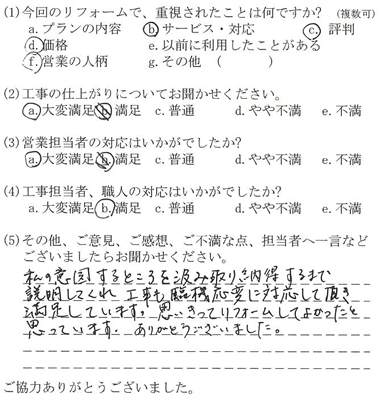 (1)今回のリフォームで、重視されたことは何ですか? (複数可)
a.プランの内容 b.サービス・対応 c.評判
d.価格 e.以前に利用したことがある
f.営業の人柄 g.その他 ( )
(2)工事の仕上がりについてお聞かせください。
a.大変満足 b.満足 c.普通 d.やや不満 e.不満
(3)営業担当者の対応はいかがでしたか?
a.大変満足 b.満足 c.普通 d.やや不満 e.不満
(4)工事担当者、職人の対応はいかがでしたか?
a.大変満足 b.満足 c.普通 d.やや不満 e.不満
(5)その他、ご意見、ご感想、ご不満な点、担当者へ一言など
ございましたらお聞かせください。
私の意図するところを汲み取り納得するまで
説明してくれ 工事も臨機応変に対応して頂き
満足しています。思いきってリフォームしてよかったと
思っています。ありがとうございました。
ご協力ありがとうございました。